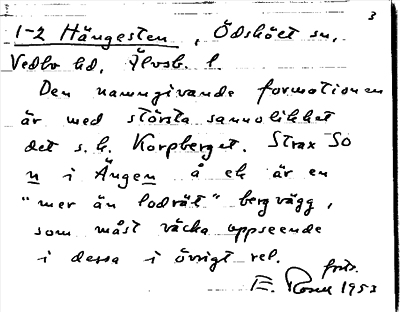 3
1-2 Hängesten, Ödskölt sn,
Vedbo hd, Älvsb. l.
Den namngivande formationen
är med största sannolikhet
det s.k. Korpberget. Strax SO
n i Ängen å ek är en
"mer än lodrät" bergvägg,
som måst väcka uppseende
i dessa i övrigt rel.
forts.
E. Rosell 1953